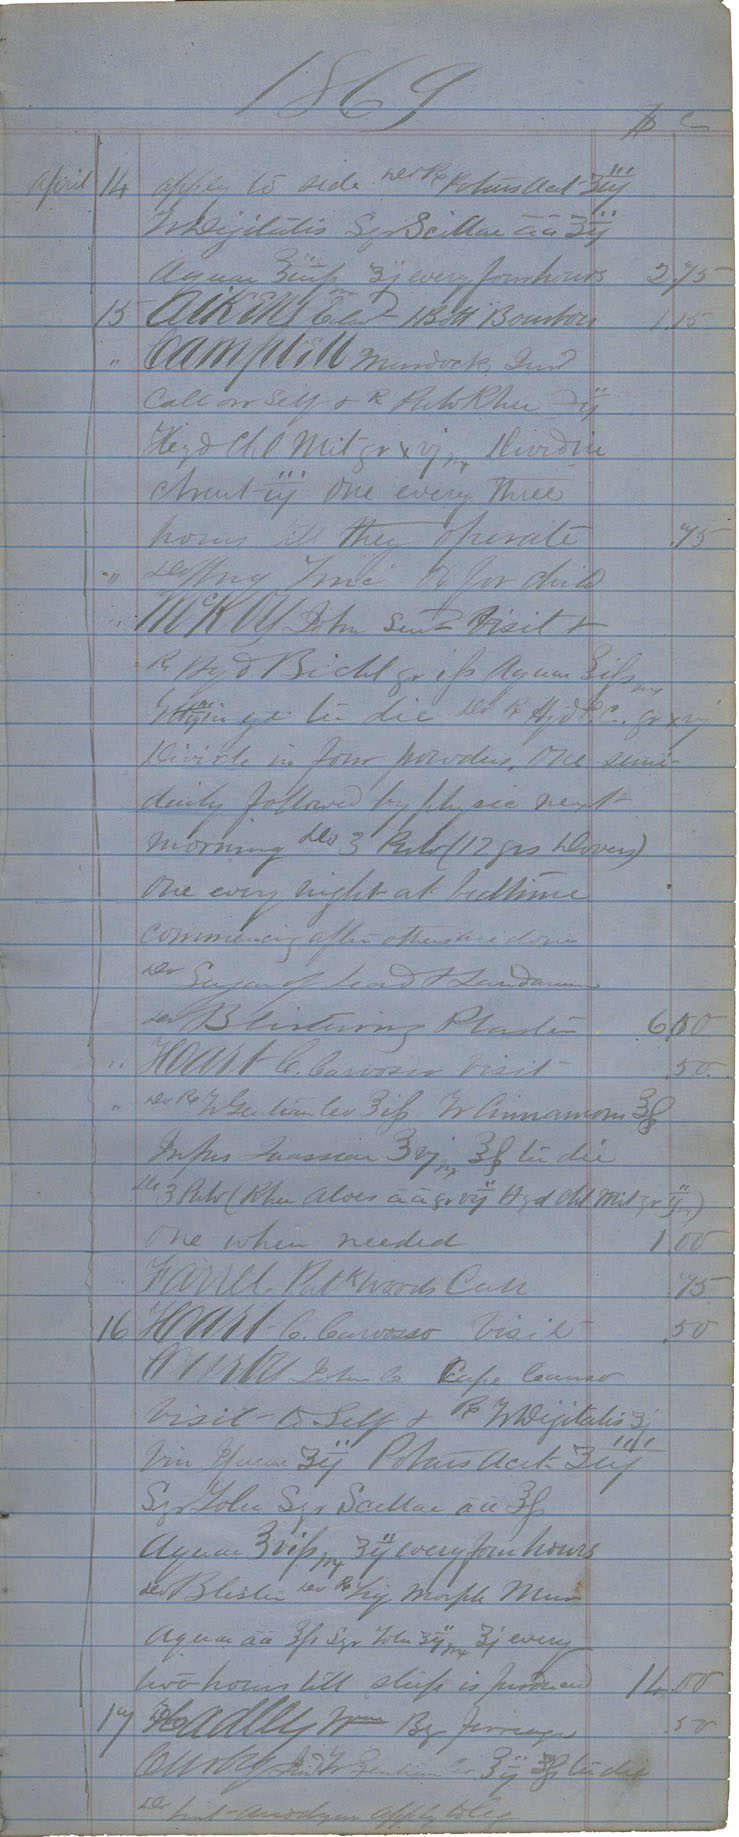 1869
$ c
April 14 apply to side Do ℞ Potass Acet ʒiij
Tr Digitalis Syr Scillae āā ʒij
Aquae ʒj every four hours 2.75
15 AIKENS 1 Bott Bourbon 1.15
" CAMPBELL Murdock, Jun
Call on Self & ℞ Pulv Rhei ℈ij
Hyd Chl Mit gr xvj Divide in
Chart iij One every three
hours till they operate .75
" Do for child
" McKOY John Sen Visit &
℞ Hyd Bichl gr Aquae
ter die Do ℞ Hyd C. gr xvj
Divide in four powders, One semi-
daily followed by physic next
morning Do 3 Pulv (12 grs Dovers)
One every night at bedtime
commencing after others are done
Do Sugar of Lead & Laudanum
Do Blistering Plaster 6.50
" HEART C. Carvosso Visit .50
" Do ℞ Tr Gentian Co ʒiſs Tr Cinnamon ʒſs
Infus Quassiae ʒvj ʒſs ter die
Do 3 Pulv (Rhei Aloes āā gr Hyd Chl Mit gr ij)
One when needed 1.00
" FARREL Patk Woods Call .75
16 HEART C. Carvosso Visit .50
John C Cape Canso
Visit to Self & ℞ Tr Digitalis ʒj
Vin ʒij Potass Acet ʒiiij
Syr Tolu Syr Scillae āā ʒſs
Aquae ʒviſs ʒij every four hours
Do Blister Do ℞ Liq Morph Mur
Aquae āā ʒſs Syr Tolu ʒij ʒj every
two hours till sleep is produced 14.00
17 HADLEY Wm By .50
Tr Gentian Co ʒij ʒſs ter die
Do Lint anodyne apply to leg